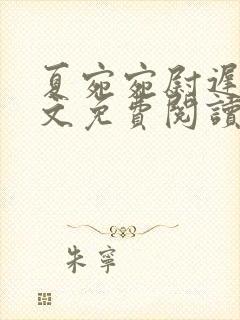 夏宛宛尉遲
文免費閱讀
朱寧